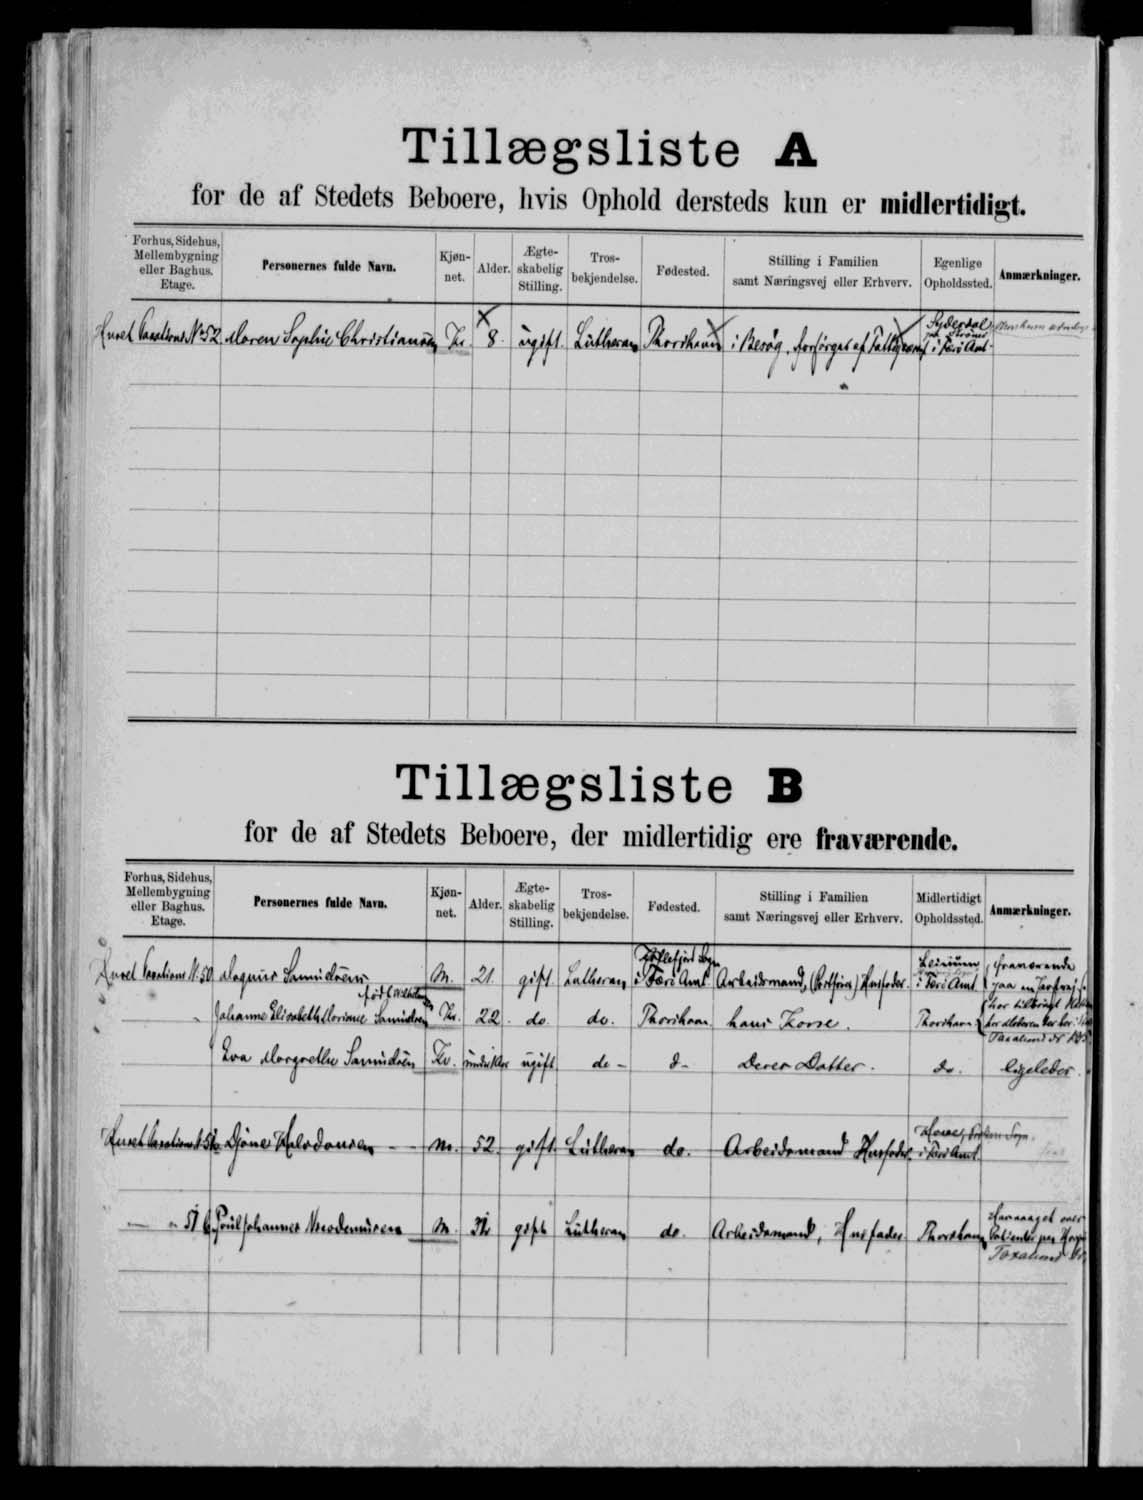 Tillægsliste A
for de af Stedets Beboere, hvis Ophold dersteds kun er midlertidigt.
Forhus, Sidehus, Mellembygning eller Baghus. Etage. Personernes fulde Navn. Kjøn-net. Alder. Ægte-skabelig Stilling. Tros-bekjendelse. Fødested. Stilling i Familien samt Næringsvej eller Erhverv. Egenlige Opholdssted. Anmærkninger.
Huset Taxations No 52 Maren Sophie Christiansen Kv. 8. ugift. Lutheran Thorshavn i Besøg, forsørget af Syderdal paa Strømø i Færø Amt.
Tillægsliste B
for de af Stedets Beboere, der midlertidig ere fraværende.
Forhus, Sidehus, Mellembygning eller Baghus. Etage. Personernes fulde Navn. Kjøn-net. Alder. Ægte-skabelig Stilling. Tros-bekjendelse. Fødested. Stilling i Familien samt Næringsvej eller Erhverv. Midlertidigt Opholdssted. Anmærkninger.
Huset Taxations N. 50 Magnus Samuelsen M. 21. gift. Lutheran i Færø Amt Arbeidsmand, Husfader. i Færø Amt fraværende
Johanne Elisabeth Samuelsen Kv. 22. do. do. Thorshavn hans Kone. Thorshavn
Eva Margrethe Samuelsen Kv. ugift do - d - Deres Datter. do. ligeledes.
Huset Taxations Djóne Halvdansen M. 52. gift. Lutheran do. Arbeidsmand Husfader. i Færø Amt.
Poul Johannes M. gift Lutheran do. Arbeidsmand, Husfader Thorshavn